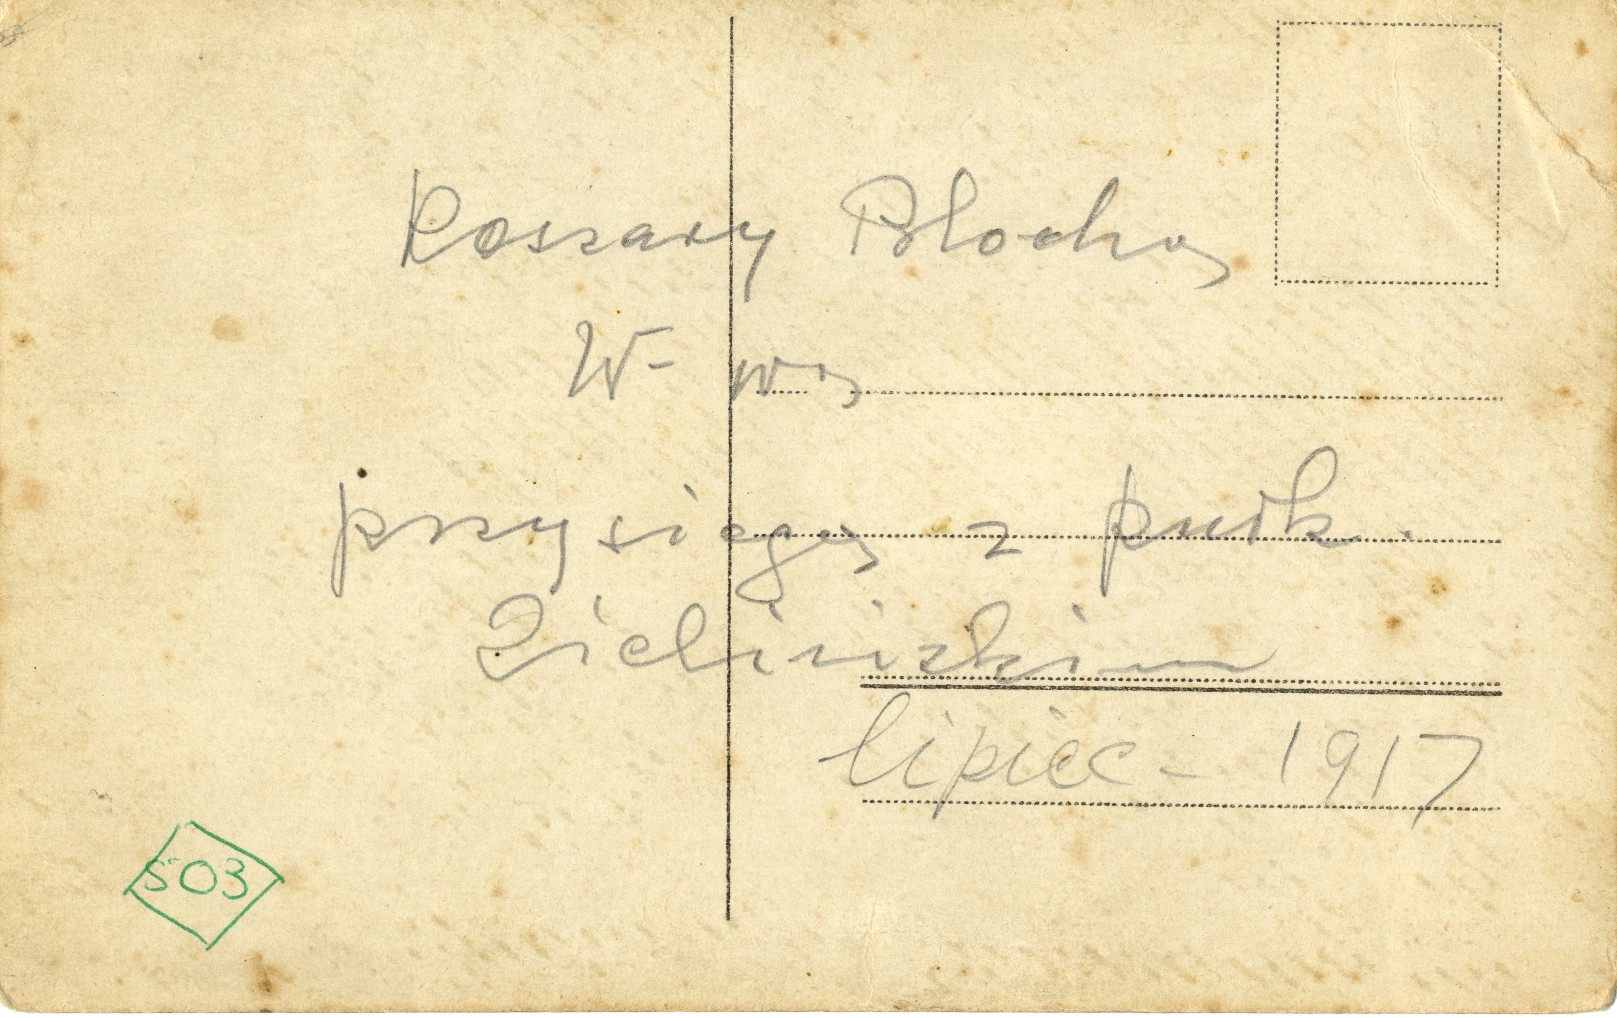 Koszary Blocha
W-wa
przysięga z pułk.
Zielińskim
lipiec - 1917
503